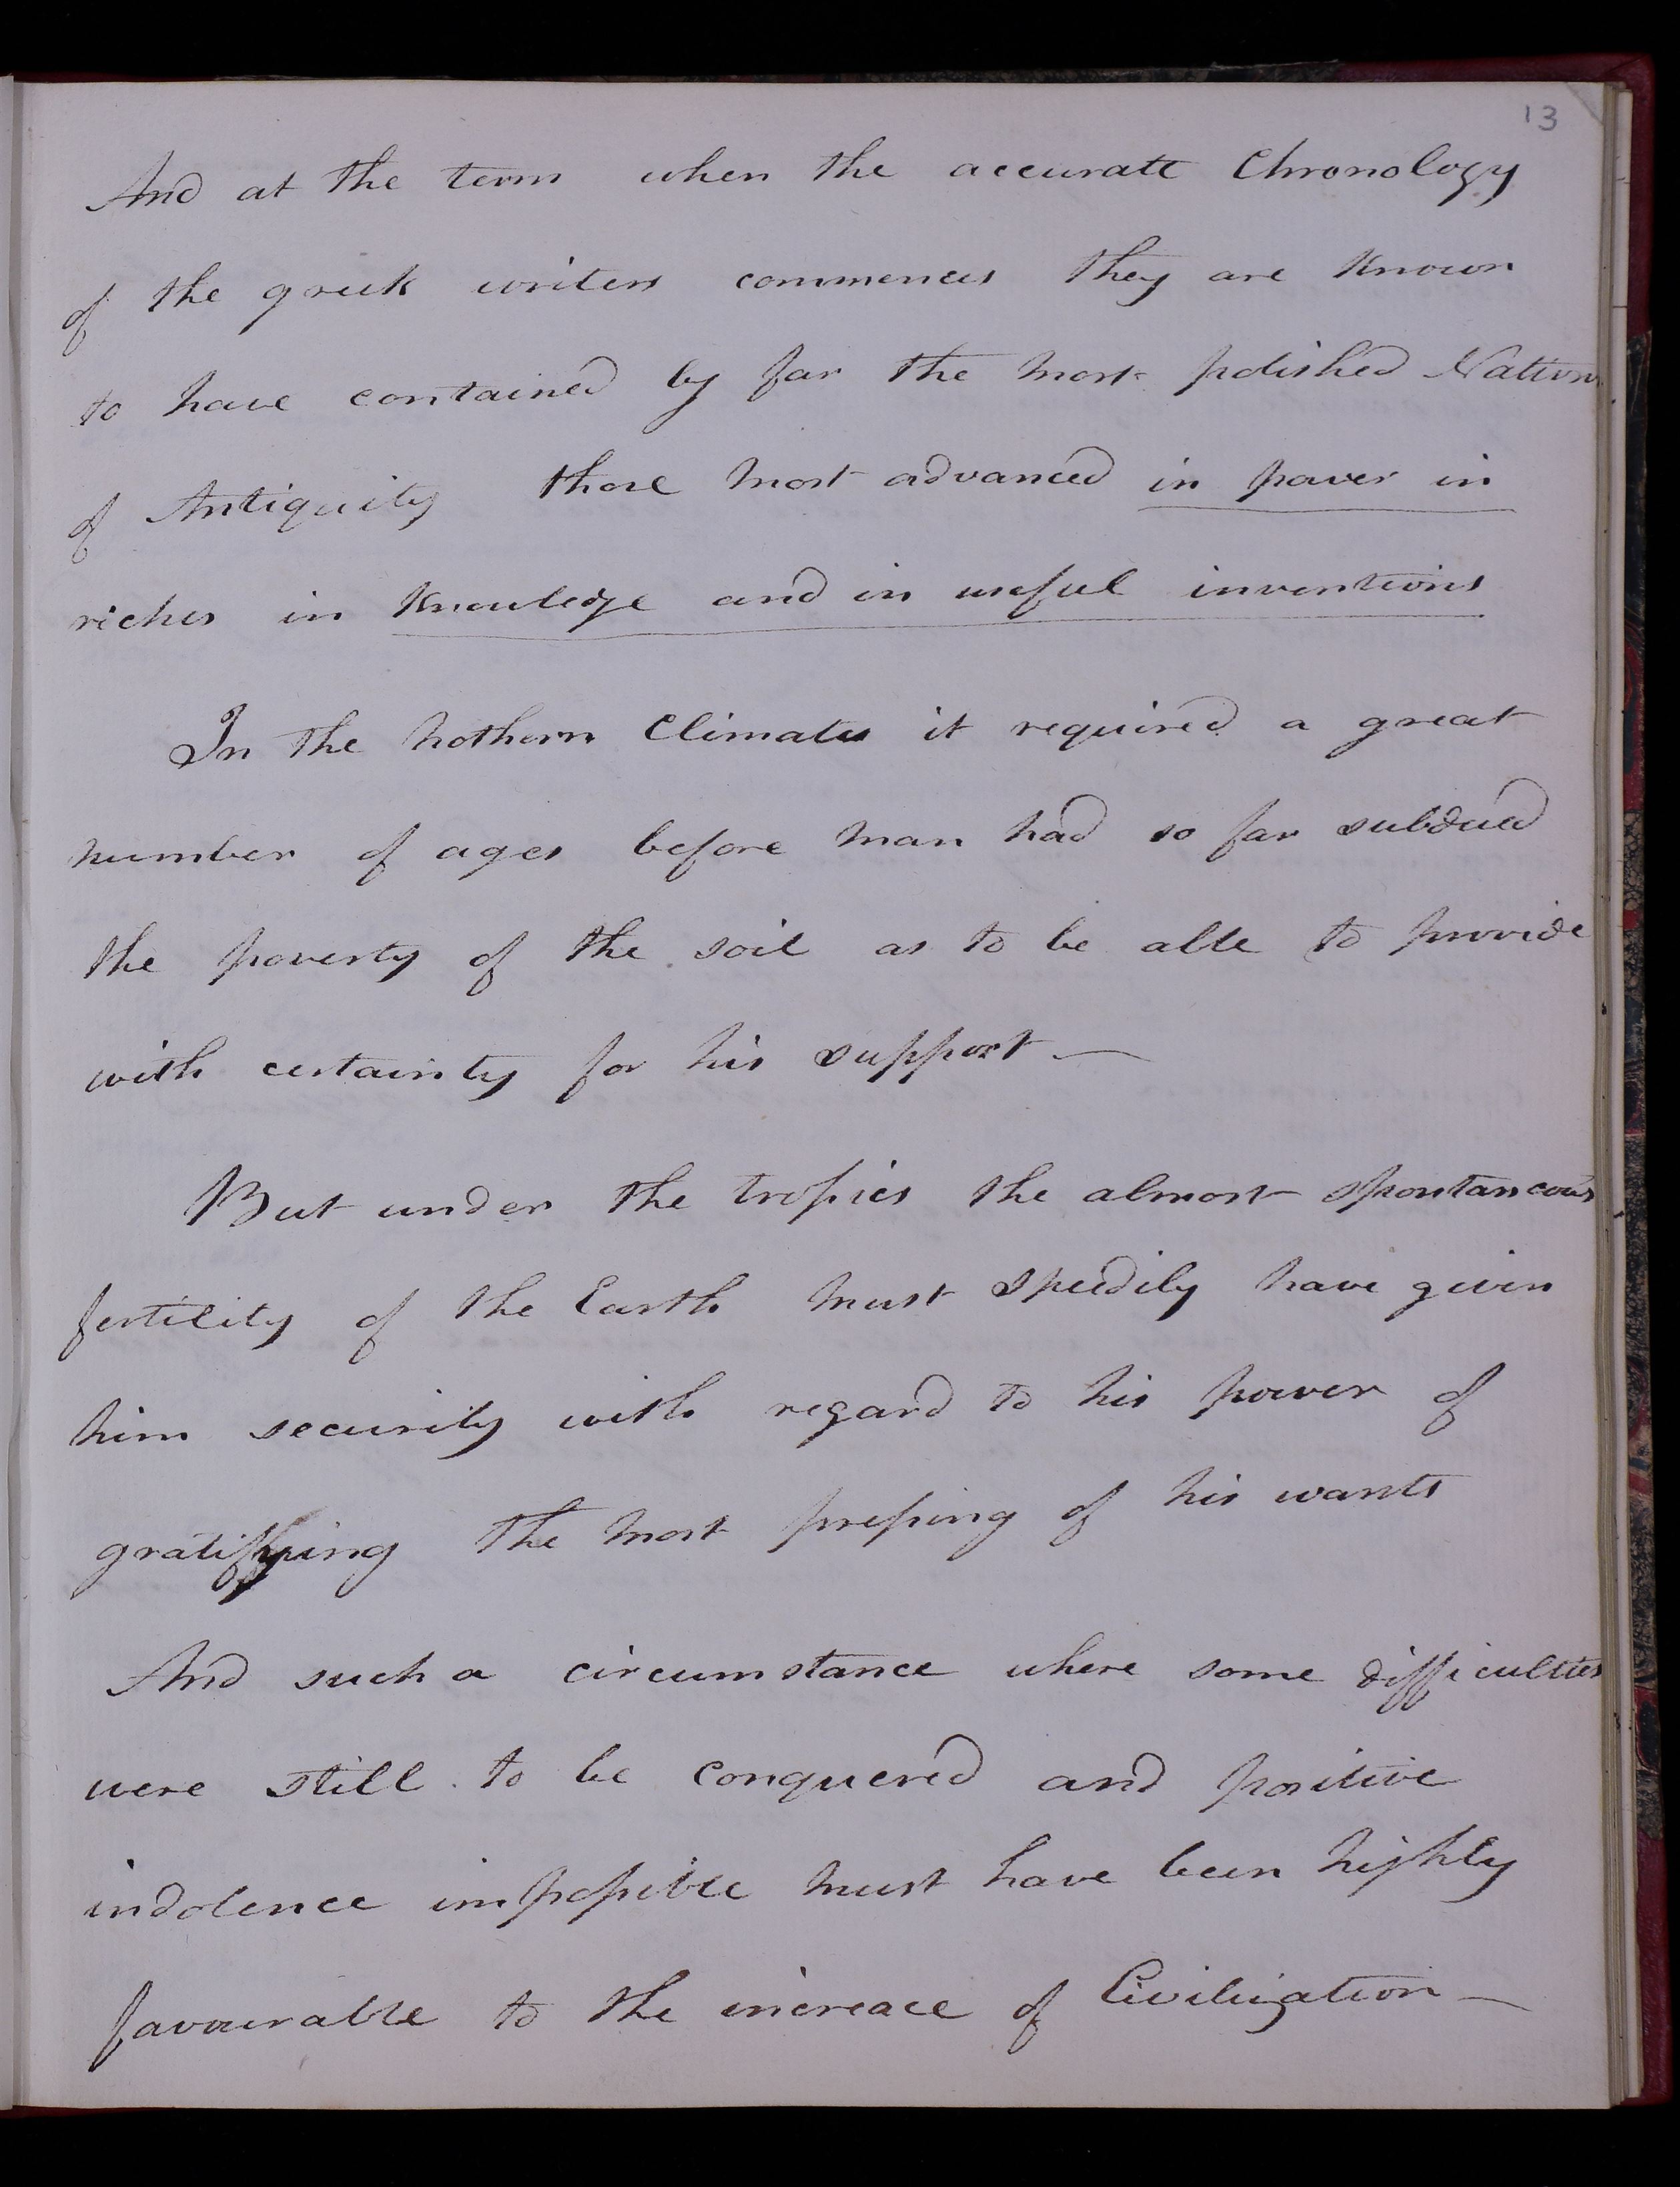 13
And at the term when the accurate Chronology
of the greek writers commences they are known
to have contained by far the most polished Nations
of Antiquity those most advanced in power in
riches in knowledge and in useful inventions
In the nothern Climates it required a great
number of ages before man had so far subdued
the poverty of the soil as to be able to provide
with certainty for his support —
But under the tropics the almost spontaneous
fertility of the Earth must speedily have given
him security with regard to his power of
gratifying the most preſsing of his wants
And such a circumstance where some difficulties
were still to be conquered and positive
indolence impoſsible must have been highly
favourable to the increace of Civilization —